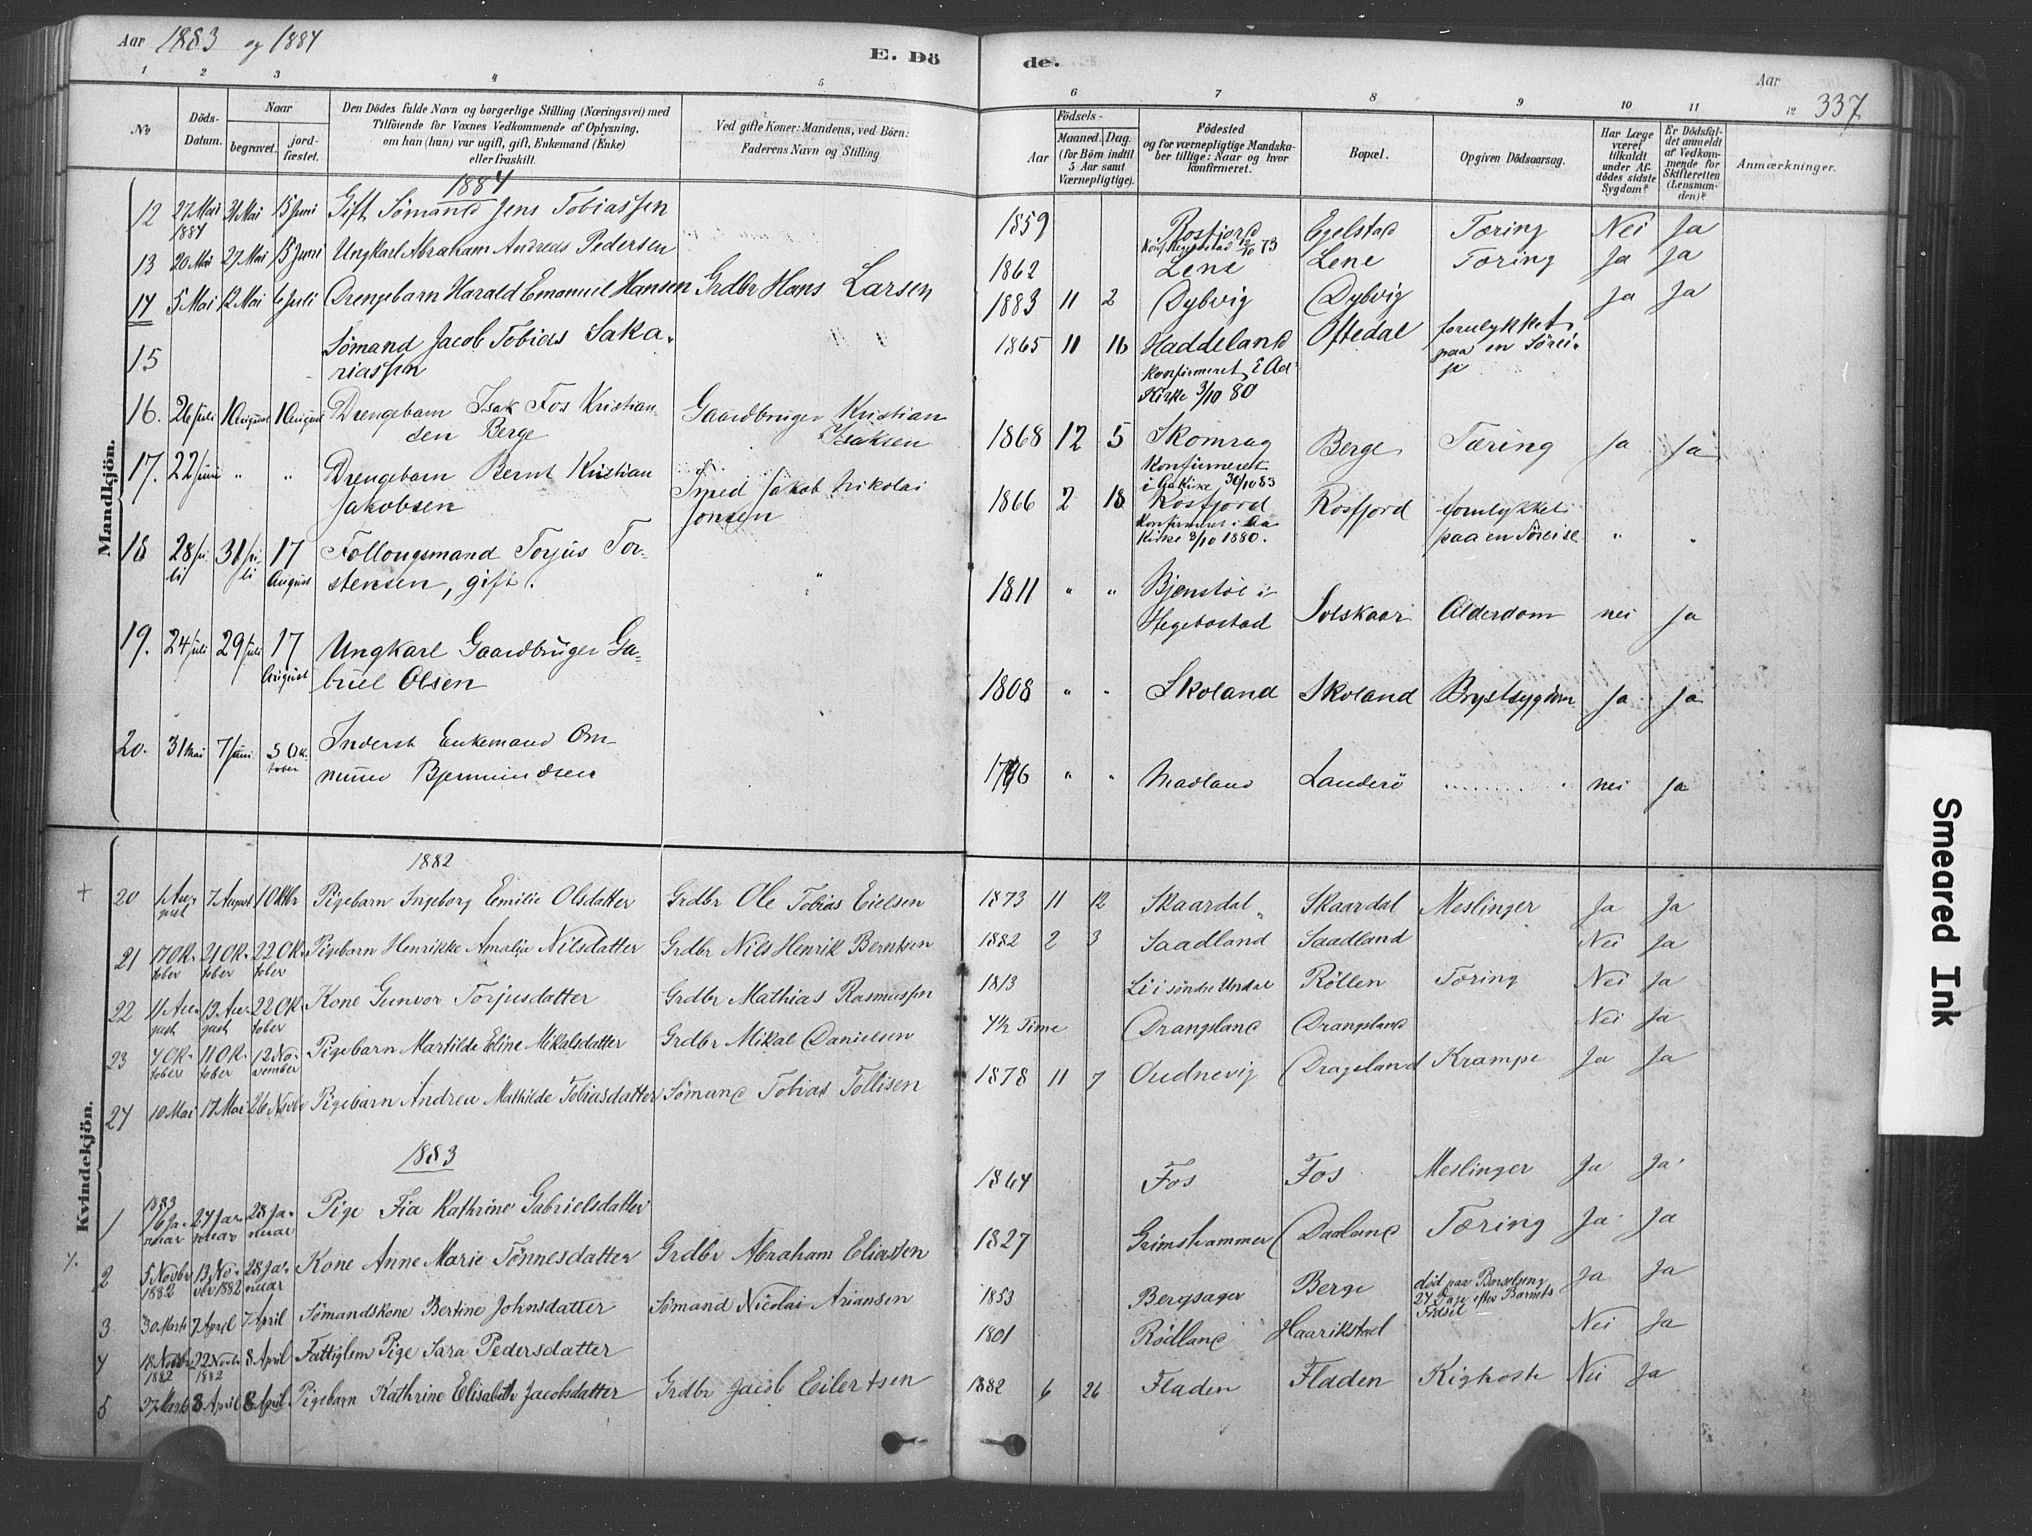 Aar 1883 og 1884
E. Dö
de.
Aar
337
1 2 3 4 5 6 7 8 9 10 11 12
No
Döds-
Datum.
Naar
begravet.
jord-
fæstet.
Den Dödes fulde Navn og borgerlige Stilling (Næringsvei) med
Tilföiende for Voxnes Vedkommende af Oplysning,
om han (hun) var ugift, gift, Enkemand (Enke)
eller fraskilt.
Ved gifte Koner: Mandens, ved Börn:
Faderens Navn og Stilling
Födsels-
Aar
Maaned.
Dag.
(for Börn indtil
5 Aar samt
Værnepligtige).
Födested
og for værnepligtige Mandska-
ber tillige: Naar og hvor
konfirmeret.
Bopæl.
Opgiven Dödsaarsag.
Har Læge
været
tilkaldt
under Af-
dödes sidste
Sygdom?
Er Dödsfal-
det anmeldt
af Vedkom-
mende for
Skifteretten
(Lensman-
den)?
Anmærkninger.
Mandkjön.
1884
12 27 Mai 1884 31 Mai 15 Juni Gift Sömand Jens Tobiassen 1859 Rosfjord Egelstad Tæring Nei Ja
13 20 Mai 27 Mai 15 Juni Ungkarl Abraham Andreas Pedersen 1862 Lene Lene Tæring Ja Ja
14 5 Mai 12 Mai 6 Juli Drengebarn Harald Emanuel Hansen Grdbr Hans Larsen 1883 11 2 Dybvig Dybvig Ja Ja
15 Sömand Jacob Tobias Saka- 1865 11 16 Haddeland Oftedal forulykket
riassen konfirmeret i Aa paa en Söreise
Kirke 3/10 80
16. 26 Juli 1 August 1 August Drengebarn Isak Fos Kristian- Gaardbruger Kristian
sen Berge Isaksen 1868 12 5 Skomrag Berge Tæring Ja Ja
Konfirmeret
i Aa Kirke 30/10 83
17. 22 Juni " " Drengebarn Bernt Kristian Smed Jakob Nikolai 1866 2 18 Rosfjord Rosfjord forulykket
Jakobsen Jonsen Konfirmeret i Aa paa en Söreise " "
Kirke 3/10 1880.
18 28 Juli 31 Juli 17 August Follougsmand Torjus Tor-
stensen, gift. " 1811 " " Bjenstöl i
Hegebostad Solskaar Alderdom nei Ja
19. 24 Juli 29 Juli 17 August Ungkarl Gaardbruger Ga-
briel Olsen 1808 " " Skoland Skoland Brystsygdom Ja Ja
20. 31 Mai 7 Juni 5 Oktober Inderst Enkemand Om-
mund Bjermundsen 1796 " " Madland Landerö nei Ja
Kvindekjön.
1882
+ 20 1 August 7 August 1 Oktbr Pigebarn Ingeborg Emilie Olsdatter Grdbr Ole Tobias Eielsen 1873 11 12 Skaardal Skaardal Meslinger Ja Ja
21 17 Oktober 21 Oktober 22 Oktober Pigebarn Henrikke Amalia Nilsdatter Grdbr Nils Henrik Berntsen 1882 2 3 Saadland Saadland Nei Ja
22 11 August 19 August 22 Oktober Kone Gunvor Torjusdatter Grdbr Mathias Rasmussen 1813 Li i söndre Undal Röllen Tæring Nei Ja
23 7 Oktober 11 Oktober 12 November Pigebarn Martilde Eline Mikalsdatter Grdbr Mikal Danielsen 4½ Time Drangsland Drangsland Nei Ja
24 10 Mai 17 Mai 26 Novbr Pigebarn Andrea Mathilde Tobiasdatter Sömand Tobias Tollisen 1878 11 7 Oudnevig Drageland Krampe Ja Ja
1883
1 1883 16 Januar 24 Januar 28 Januar Pige Fia Kathrine Gabrielsdatter 1864 Fos Fos Meslinger Ja Ja
2 5 Novbr 1882 13 Novbr 1882 28 Januar Kone Anne Marie Tönnesdatter Grdbr Abraham Eliassen 1827 Grimshammer Daaland Tæring Ja Ja
3 30 Marts 7 April 7 April Sömandskone Bertine Johnsdatter Sömand Nicolai Ariansen 1853 Bergsager Berge död paa Barselseng
27 Dage efter Barnets
Födsel Ja Ja
4 18 Novbr 1882 22 Novbr 1882 8 April Fattiglem Pige Sara Pedersdatter 1801 Rödland Haarikstad Nei Ja
5 27 Marts 8 April 8 April Pigebarn Kathrine Elisabeth Jacobsdatter Grdbr Jacob Eilertsen 1882 6 26 Fladen Fladen Kighoste Nei Ja
Smeared Ink